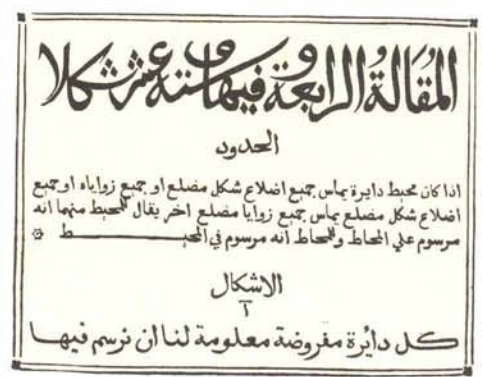 المقالة الرابعة وفيها ستة عشر شكلا
الحدود
اذا كان محيط دايرة يماس جميع اضلاع شكل مضلع او جميع زواياه او جميع
اضلاع شكل مضلع يماس جميع زوايا مضلع اخر يقال للمحيط منهما انه
مرسوم علي المحاط وللمحاط انه مرسوم في المحيط
الاشكال
ا
كل دايرة مفروضة معلومة لنا ان نرسم فيها